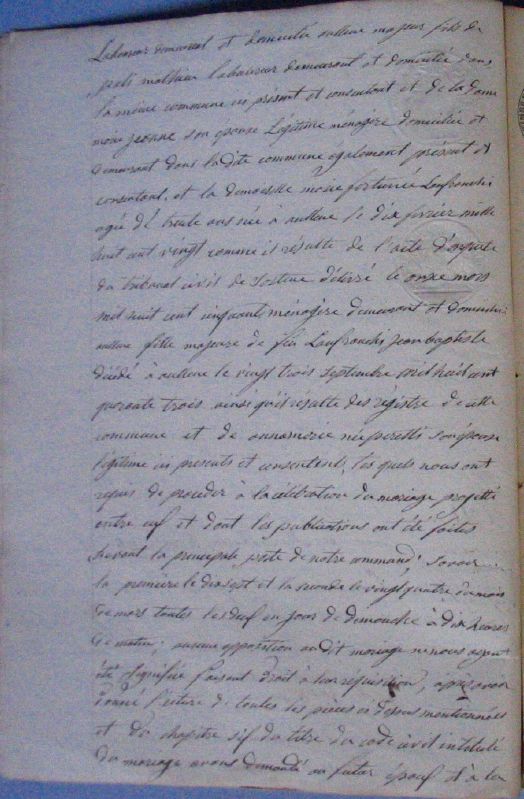 Laboureur demeurant et domicilié aullene majeur fils de
poli mathieu laboureur demeurant et domicilié dans
la même commune ici présent et consentant et de la dame
marie jeanne son épouse légitime ménagère domiciliée et
demeurant dans ladite commune également présent et
consentant, et la demoiselle marie fortunée Lanfranchi
agée de trente ans née à aullene le dix février mille
huit cent vingt comme il résulte de l'acte
du tribunal civil de sartene délivré le onze mars
mil huit cent cinquante ménagère demeurant et domiciliée
aullene fille majeure de feu Lanfranchi jean baptiste
décédé à aullene le vingt trois septembre mil huit cent
quarante trois ainsi qu'il résulte des régistre de cette
commune et de annamarie née peretti son épouse
légitime ici presents et consentent, les quels nous ont
requis de proceder à la célébration du mariage projetté
entre eux et dont les publications ont été faites
devant la principale porte de notre savoir
la première le dix sept et la seconde le vingt quatre du mois
de mars toutes les deux un jour de dimanche à dix heures
de matin; aucune opposition au dit mariage ne nous ayant
été signifiée faisant droit à leur requisition, apres avoir
donné lecture de toutes les pièces ci dessus mentionnées
et du chapitre six du titre du code civil intitulé
du mariage avons demandé au futur époux et à la